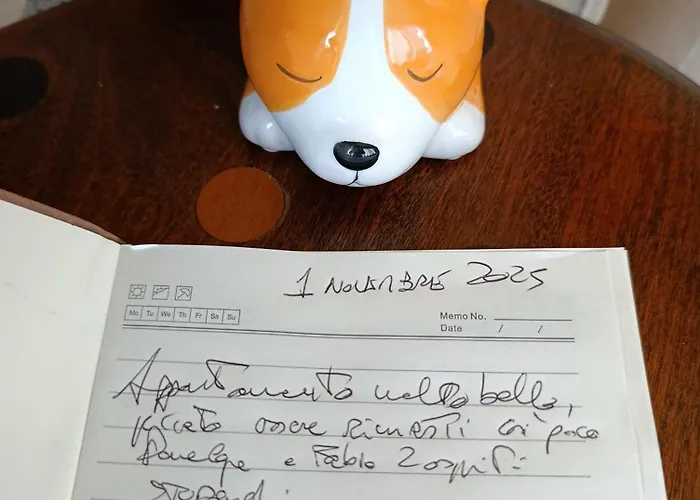 1 NOVEMBRE 2025
Mo Tu We Th Fr Sa Su
Memo No.
Date / /
Appartamento molto bello,
peccato essere rimasti così poco
e Fabio 2 ospiti
stupendi